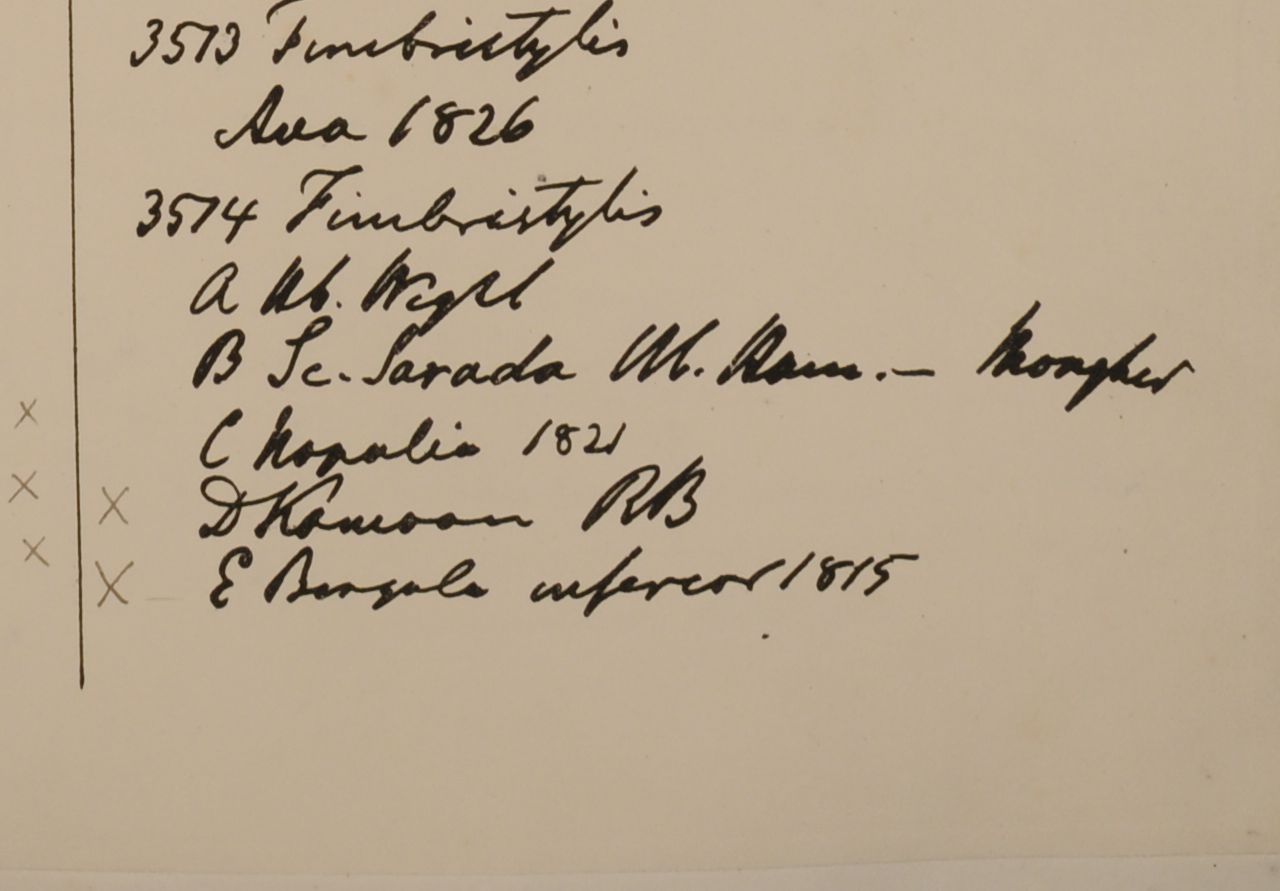 3513 Fimbristylis
Ava 1826
3514 Fimbristylis
A Hb. Wight
B Sc. Sarada Hb. Ham. — Monghir
C Napalia 1821
D Kamoon RB
E Bengala inferior 1815